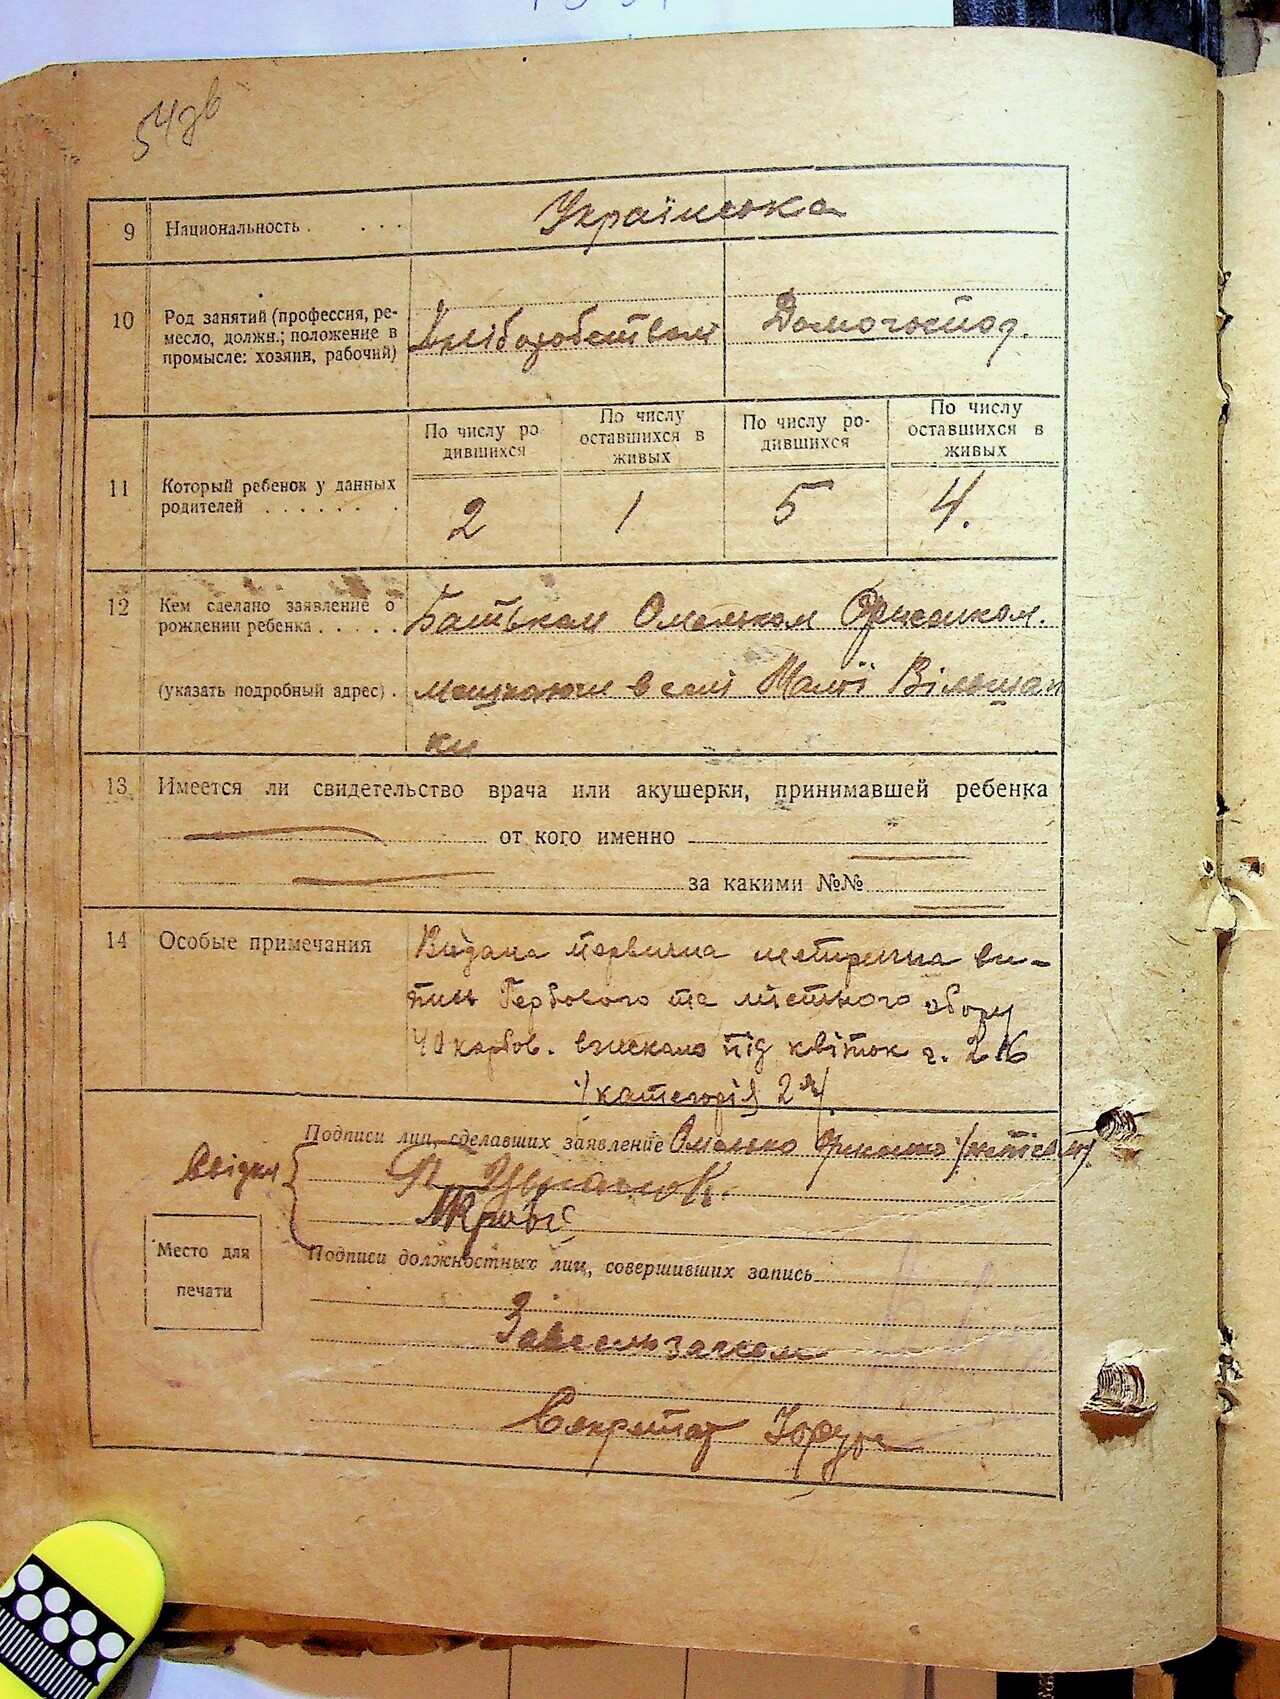 54зв
9 Национальность . . . . Українська
10 Род занятий (профессия, ре-
месло, должн.; положение в
промысле: хозяин, рабочий)
Хліборобством Домогоспод.
11 Который ребенок у данных
родителей . . . . . . .
По числу ро-
дившихся
По числу
оставшихся в
живых
По числу ро-
дившихся
По числу
оставшихся в
живых
2 1 5 4.
12 Кем сделано заявление о
рождении ребенка . . . . .
(указать подробный адрес) .
Батьком Омельком
мешкаючи в селі Малій Вільшан
ки
13 Имеется ли свидетельство врача или акушерки, принимавшей ребенка
от кого именно
за какими №№
14 Особые примечания
Видана первична метрична ви-
пись Гербового та містного збору
карбов. взискано під квіток ч.
/категорія 2
Подписи лиц, сделавших заявление Омелько
Свідки
Место для
печати
Подписи должностных лиц, совершивших запись
Секретар